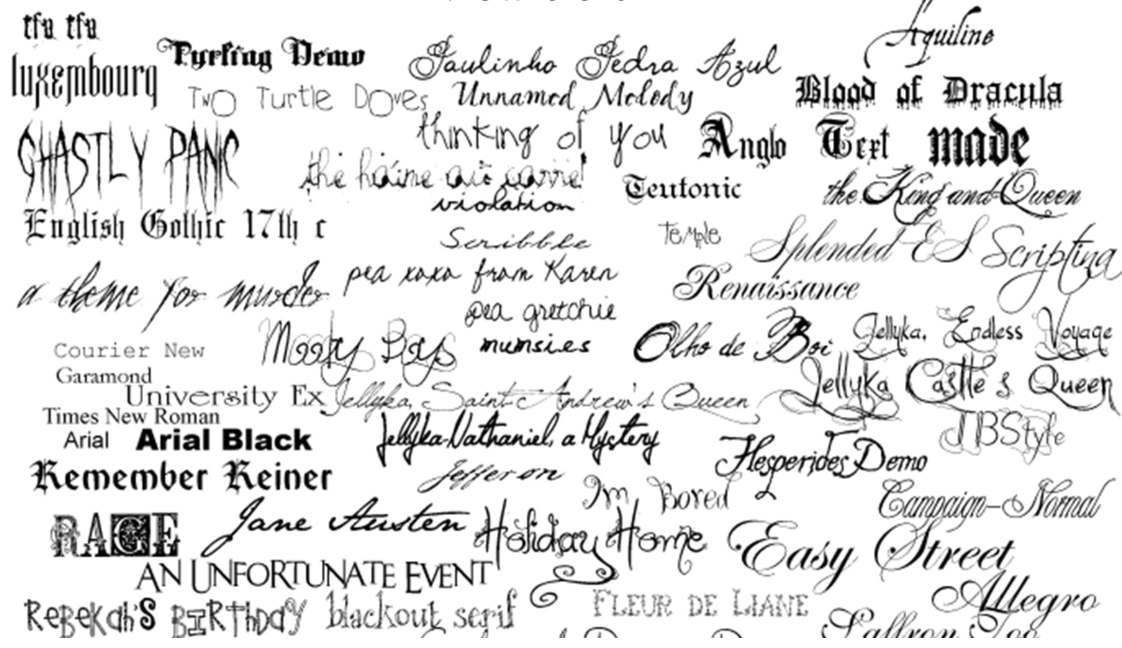 tfu tfu
Aquiline
Tyrfing Demo
Paulinho Pedra Azul
luxembourg
Two Turtle Doves
Unnamed Melody
Blood of Dracula
thinking of you
Anglo Text
made
GHASTLY PANIC
the haine au carré
Teutonic
the King and Queen
violation
English Gothic 17th c
Scribble
Temple
Splended ES
Scriptina
a theme for murder
pea xoxo from Karen
Renaissance
pea gretchie
Moody Boys
mumsies
Olho de Boi
Jellyka, Endless Voyage
Courier New
Garamond
Jellyka Castle's Queen
University Ex
Jellyka, Saint-Andrew's Queen
Times New Roman
JBStyle
Arial
Arial Black
Jellyka-Nathaniel, a Mystery
Hesperides Demo
Remember Reiner
Jefferson
I'm Bored
Campaign-Normal
RAGE
Jane Austen
Holiday Home
Easy Street
AN UNFORTUNATE EVENT
Allegro
Rebekah's Birthday
blackout serif
FLEUR DE LIANE
Saffron Too